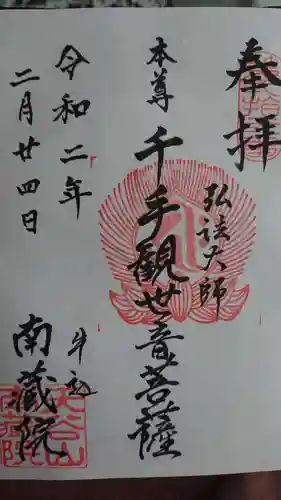 奉拝
弘法大師
本尊 千手観世音菩薩
令和二年
二月廿四日
南蔵院